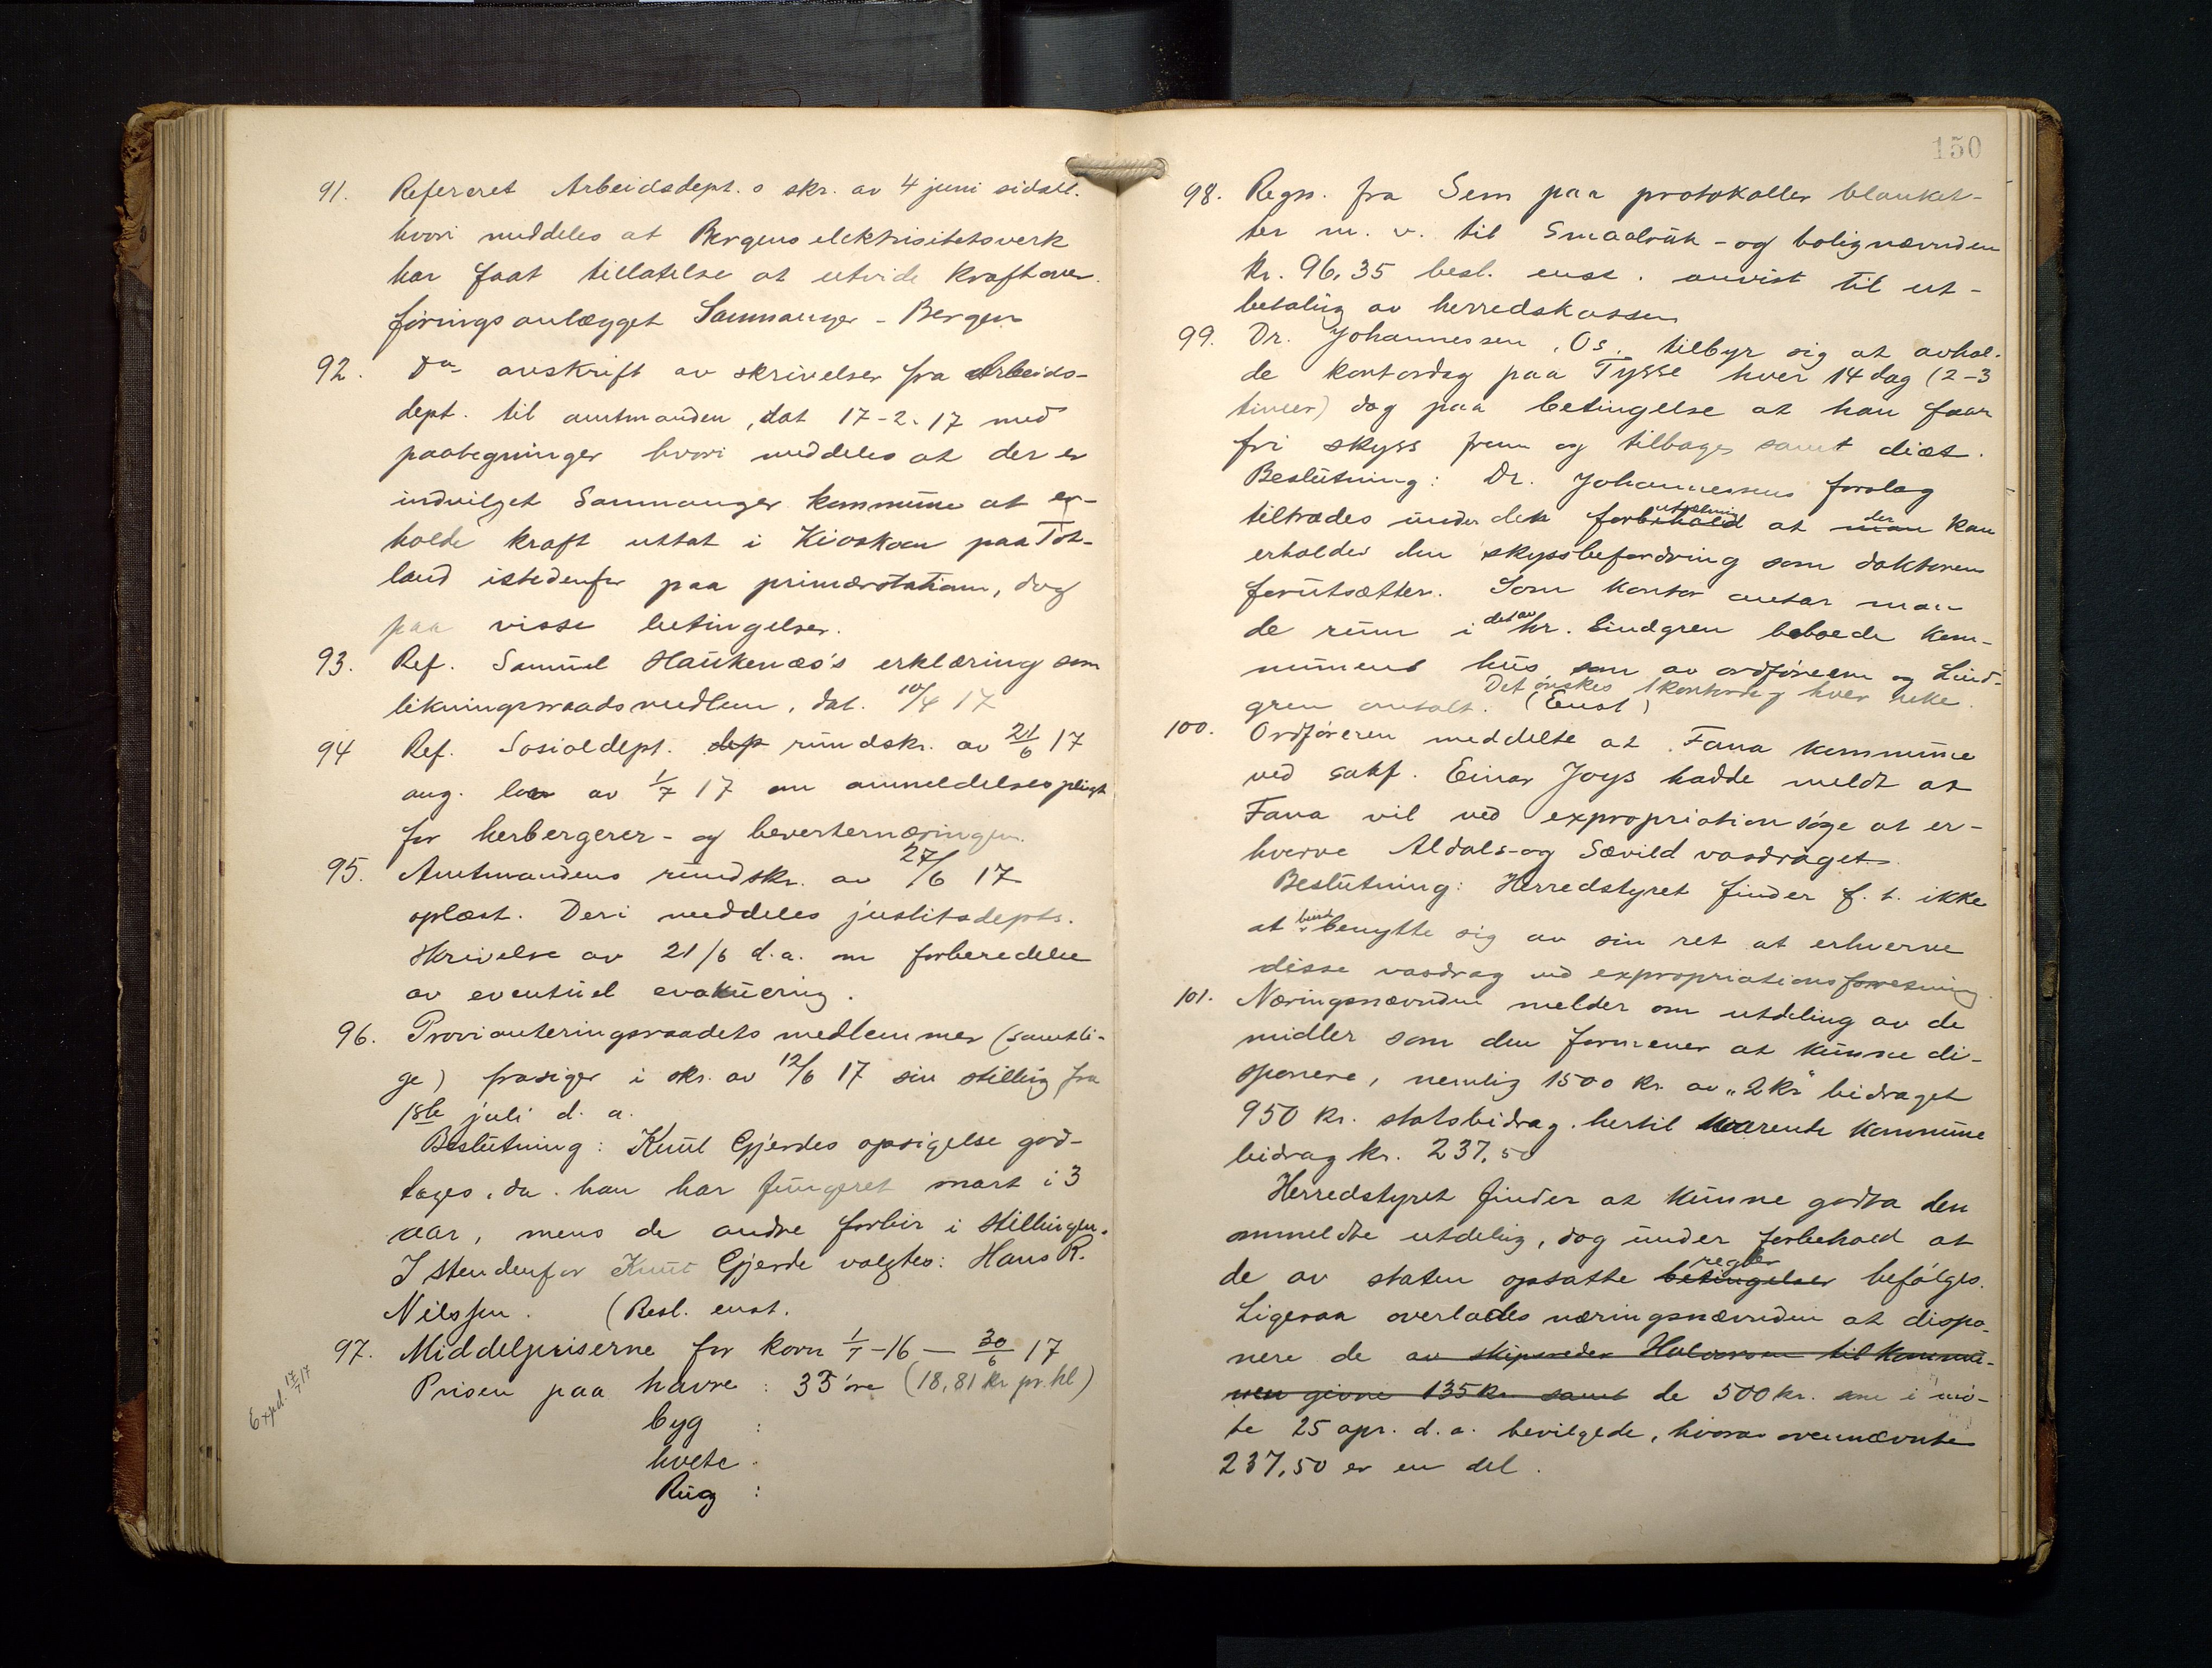 91. Refereret Arbeidsdept.s skr. av 4 juni sidstl.
hvori meddeles at Bergens elektrisitetsverk
har faat tillatelse at utvide kraftover-
føringsanlægget Samnanger - Bergen
92. Do avskrift av skrivelser fra Arbeids-
dept. til amtmanden, dat 17-2-17 med
paategninger hvori meddeles at der er
indvilget Samnanger kommune at er-
holde kraft uttat i Kiosken paa Tot-
land istedenfor paa primærstationen, dog
paa visse betingelser.
93. Ref. Samuel Haukenæs's erklæring som
likningsraadsmedlem, dat. 10/4 17
94 Ref. Sosialdept. dep rundskr. av 21/6 17
ang. lov av 1/7 17 om anmeldelsespligt
for herbergerer- og beverternæringen.
95. Amtmandens rundskr. av 27/6 17
oplæst. Deri meddeles justitsdepts.
skrivelse av 21/6 d.a. om forberedelse
av eventuel evakuering.
96. Provianteringsraadets medlemmer (samtli-
ge) frasiger i skr. av 12/6 17 sin stilling fra
1ste juli d. a.
Beslutning: Knut Gjerdes opsigelse god-
tages, da han har fungeret snart i 3
aar, mens de andre forblir i stillingen.
Istendenfor Knut Gjerde valgtes: Hans R.
Nilssen. (Besl. enst.
97. Middelpriserne for korn 1/7-16 — 30/6 17
Prisen paa havre: 33 øre (18,81 kr pr. hl)
Exped. 17/7 17
byg :
hvete
Rug :
150
98. Regn. fra Sem paa protokoller blanket-
ter m. v. til Smaabruk- og bolignævnden
kr. 96,35 besl. enst. anvist til ut-
betaling av herredskassen
99. Dr. Johannessen, Os, tilbyr sig at avhol-
de kontordag paa Tysse hver 14 dag (2-3
timer) dog paa betingelse at han faar
fri skyss frem og tilbages samt diæt.
Beslutning: Dr. Johannessens forslag
tiltrædes under den forbehold at man der kan
erholdes den skyssbefordring som doktoren
forutsætter. Som kontor antar man
de rum i det av Hr. Lindgren beboede kom-
munens hus som av ordføreren og Lind-
Det ønskes 1 kontordag hver uke.
gren avtalt. (Enst)
100. Ordføreren meddelte at Fana kommune
ved sakf. Einar Joys hadde meldt at
Fana vil ved expropriation søge at er-
hverve Aldals- og Sævild vasdraget.
Beslutning: Herredstyret finder f. t. ikke
at benytte sig av sin ret at erhverve
disse vasdrag ved expropriationsforretning.
101. Næringsnævnden melder om utdeling av de
midler som den formener at kunne di-
sponere, nemlig 1500 kr. av „2 kr" bidraget
950 kr. statsbidrag. hertil svarende kommune
bidrag kr. 237,50
Herredstyret finder at kunne godta den
anmeldte utdeling, dog under forbehold at
de av staten opsatte betingelser regler befølges.
Ligesaa overlades næringsnævnden at dispo-
nere de av skipsreder Halvorsen til kommu-
nen givne 135 kr. samt de 500 kr. som i mø-
te 25 apr. d. a. bevilgede, hvorav ovennævnte
237,50 er en del.